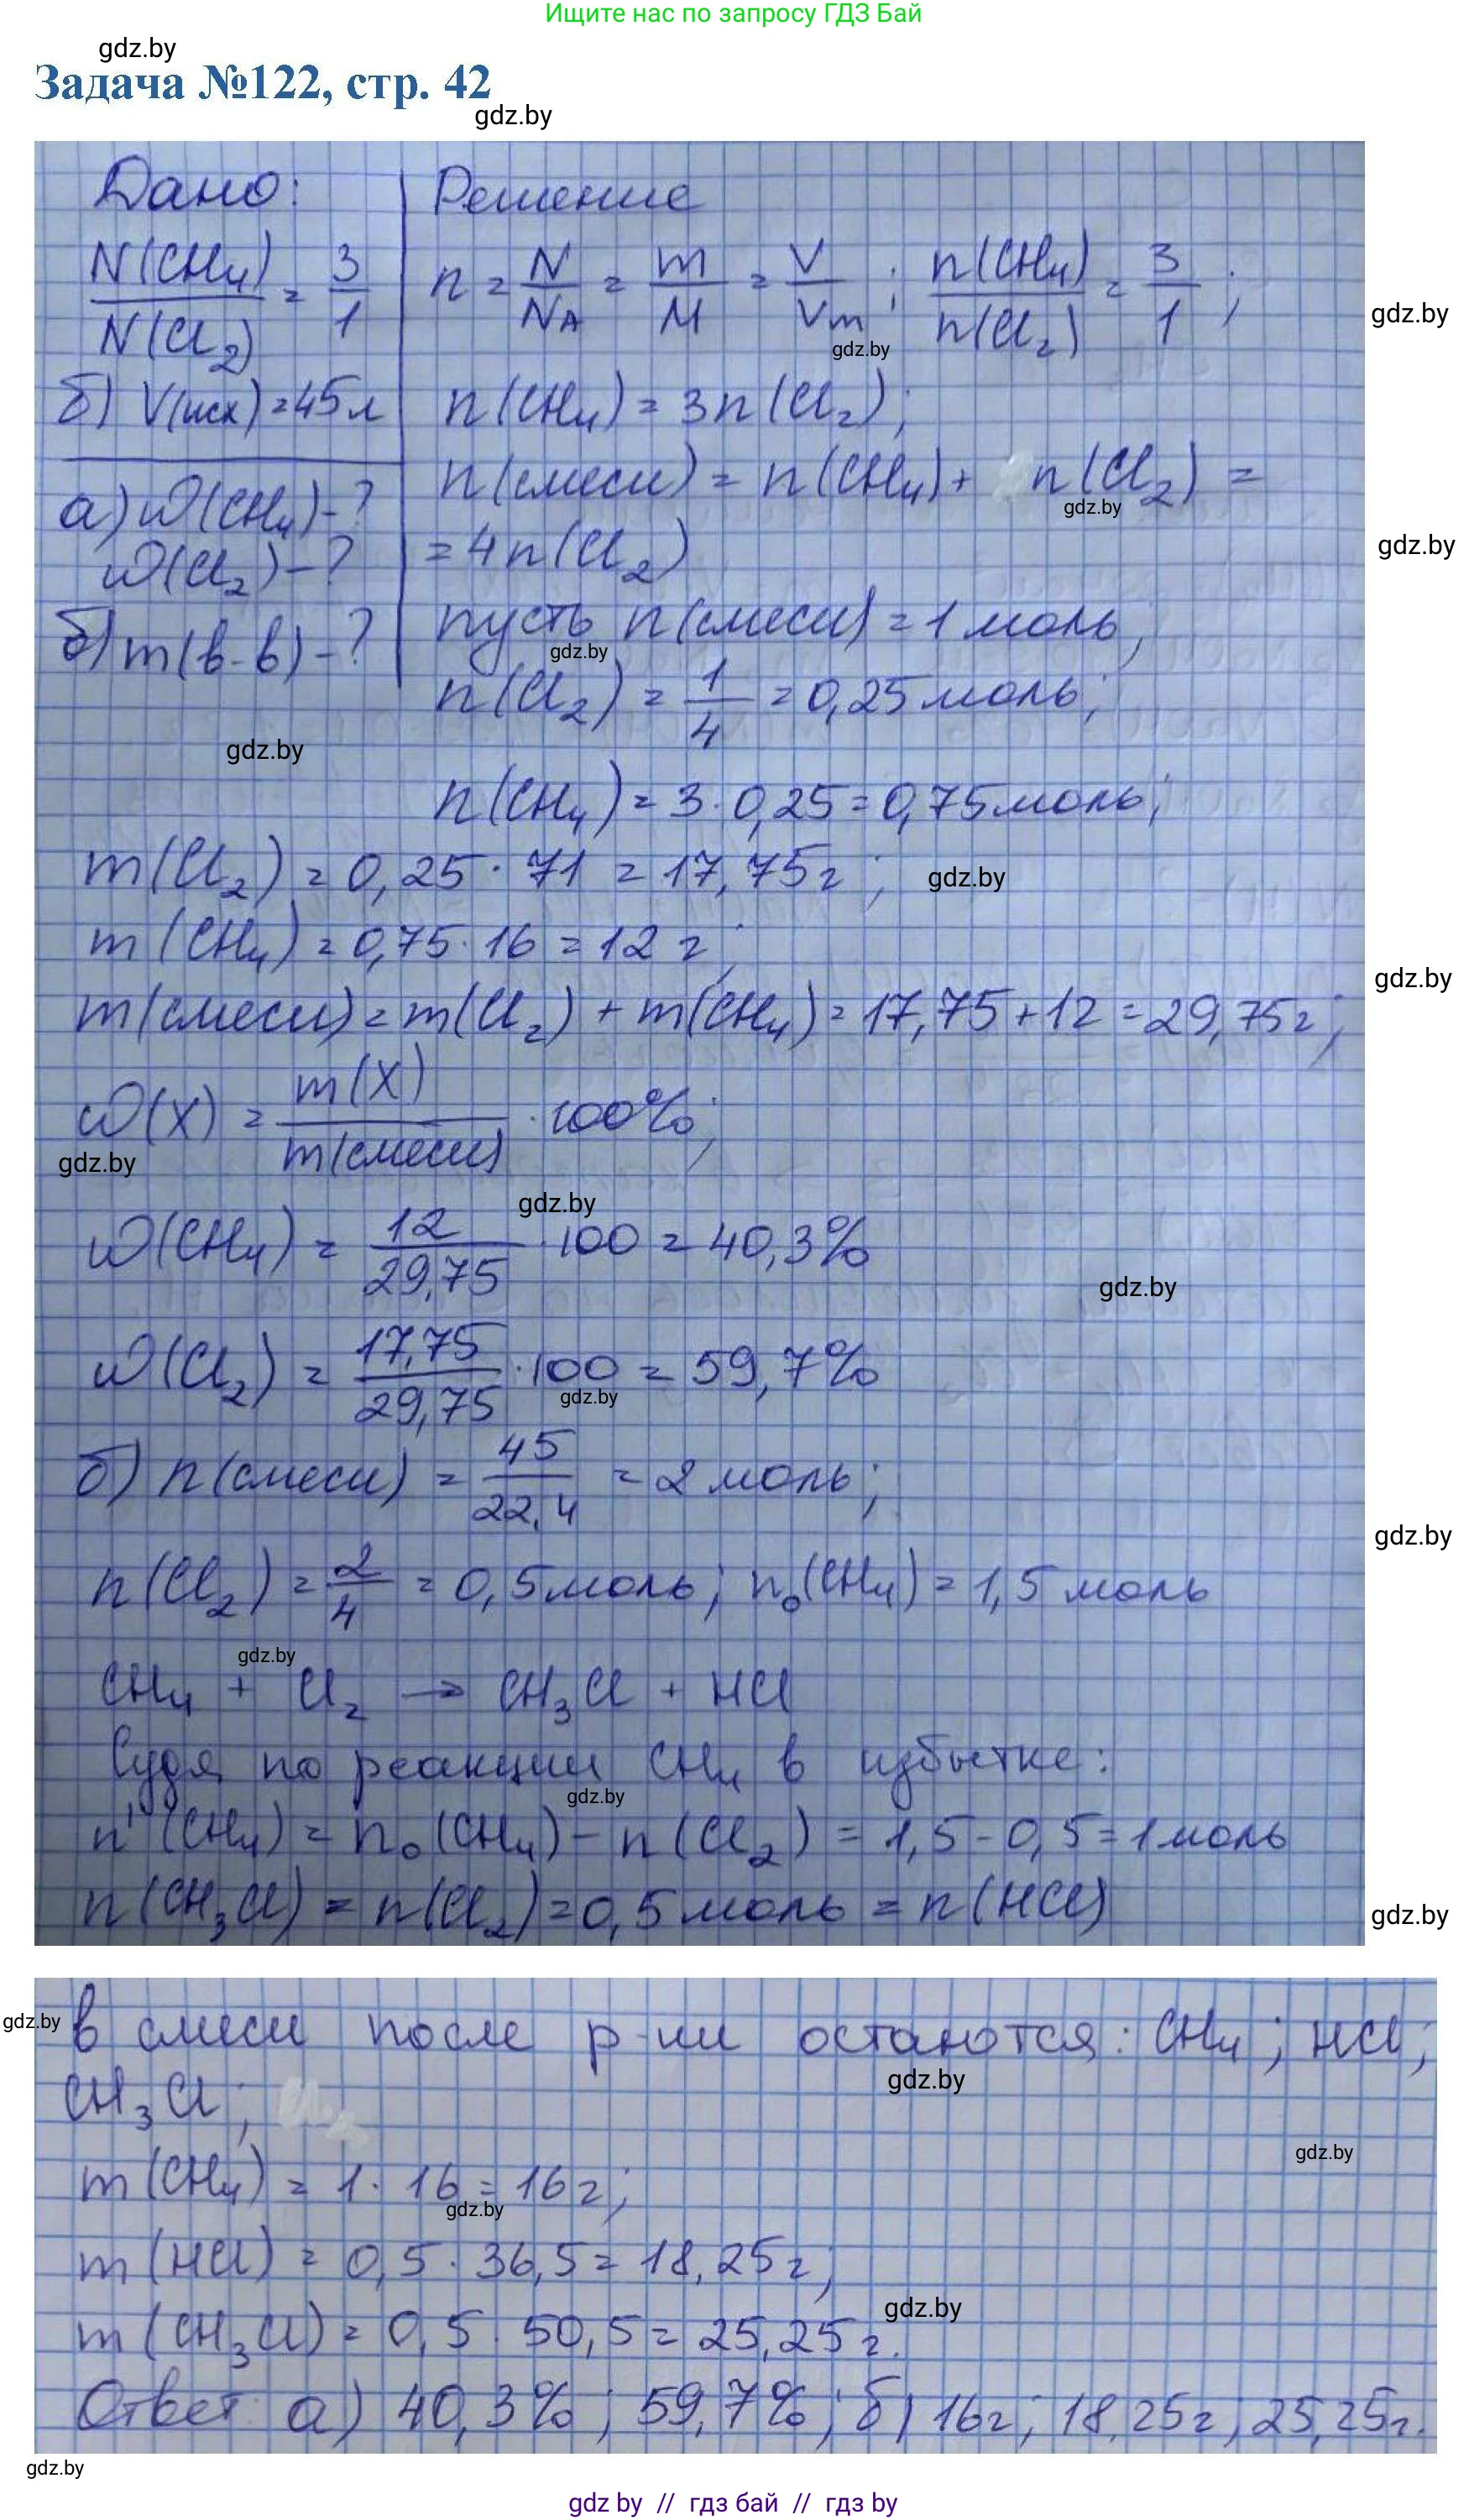 Ищите нас по запросу ГДЗ Бай
gdz.by
Задача №122, стр. 42
gdz.by
Дано:
N(CH₄)/N(Cl₂) = 3/1
б) V(исх) = 45 л
а) ω(CH₄) - ?
ω(Cl₂) - ?
б) m(в-в) - ?
Решение
n = N/N_A = m/M = V/Vm; n(CH₄)/n(Cl₂) = 3/1;
gdz.by
gdz.by
n(CH₄) = 3n(Cl₂);
n(смеси) = n(CH₄) + n(Cl₂) =
gdz.by
= 4n(Cl₂)
gdz.by
пусть n(смеси) = 1 моль;
gdz.by
n(Cl₂) = 1/4 = 0,25 моль;
gdz.by
n(CH₄) = 3 · 0,25 = 0,75 моль;
m(Cl₂) = 0,25 · 71 = 17,75 г;
gdz.by
m(CH₄) = 0,75 · 16 = 12 г;
gdz.by
m(смеси) = m(Cl₂) + m(CH₄) = 17,75 + 12 = 29,75 г;
ω(X) = m(X)/m(смеси) · 100%;
gdz.by
gdz.by
ω(CH₄) = 12/29,75 · 100 = 40,3%
gdz.by
ω(Cl₂) = 17,75/29,75 · 100 = 59,7%
gdz.by
б) n(смеси) = 45/22,4 = 2 моль;
gdz.by
n(Cl₂) = 2/4 = 0,5 моль; n₀(CH₄) = 1,5 моль
gdz.by
CH₄ + Cl₂ → CH₃Cl + HCl
Судя по реакции CH₄ в избытке:
gdz.by
n'(CH₄) = n₀(CH₄) - n(Cl₂) = 1,5 - 0,5 = 1 моль
n(CH₃Cl) = n(Cl₂) = 0,5 моль = n(HCl)
gdz.by
gdz.by
в смеси после р-ии остаются: CH₄; HCl;
gdz.by
CH₃Cl;
gdz.by
m(CH₄) = 1 · 16 = 16 г;
gdz.by
m(HCl) = 0,5 · 36,5 = 18,25 г;
gdz.by
m(CH₃Cl) = 0,5 · 50,5 = 25,25 г.
Ответ: а) 40,3%; 59,7%; б) 16 г; 18,25 г; 25,25 г.
gdz.by
gdz by // гдз бай // гдз by